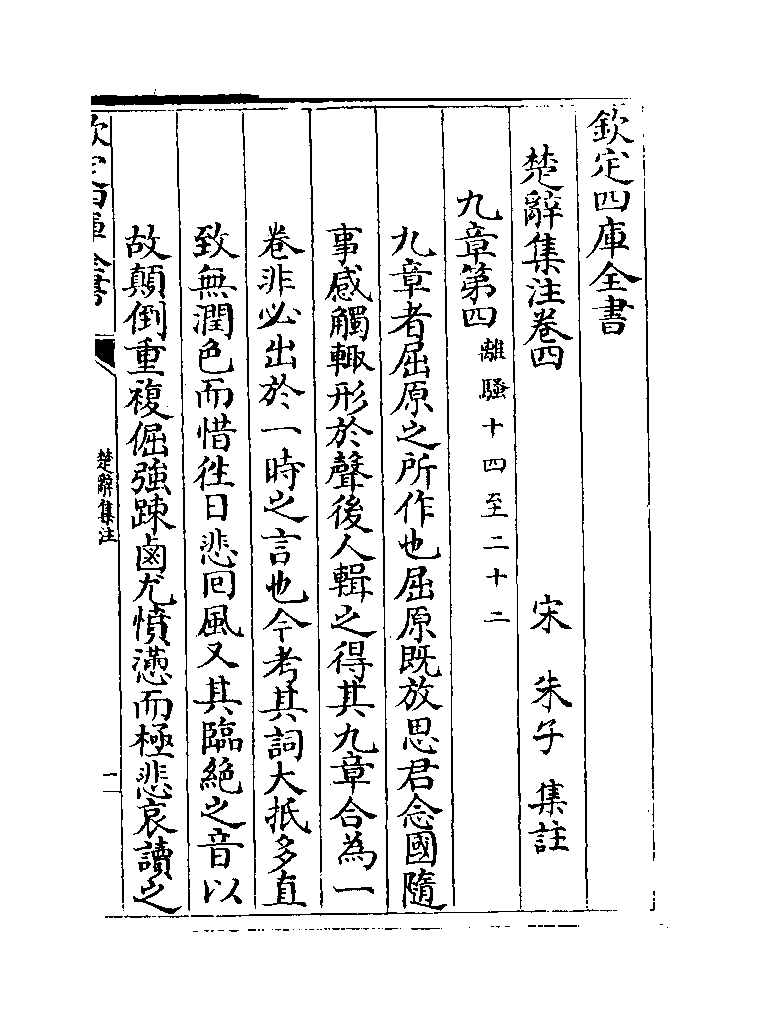 欽定四庫全書
楚辭集注卷四
宋 朱子 集註
九章第四 離騷十四至二十二
九章者屈原之所作也屈原既放思君念國隨
事感觸輙形於聲後人輯之得其九章合為一
卷非必出於一時之言也今考其詞大抵多直
致無潤色而惜徃日悲囘風又其臨絶之音以
故顛倒重複倔強踈鹵尤憤懣而極悲哀讀之
欽定四庫全書
楚辭集注
一